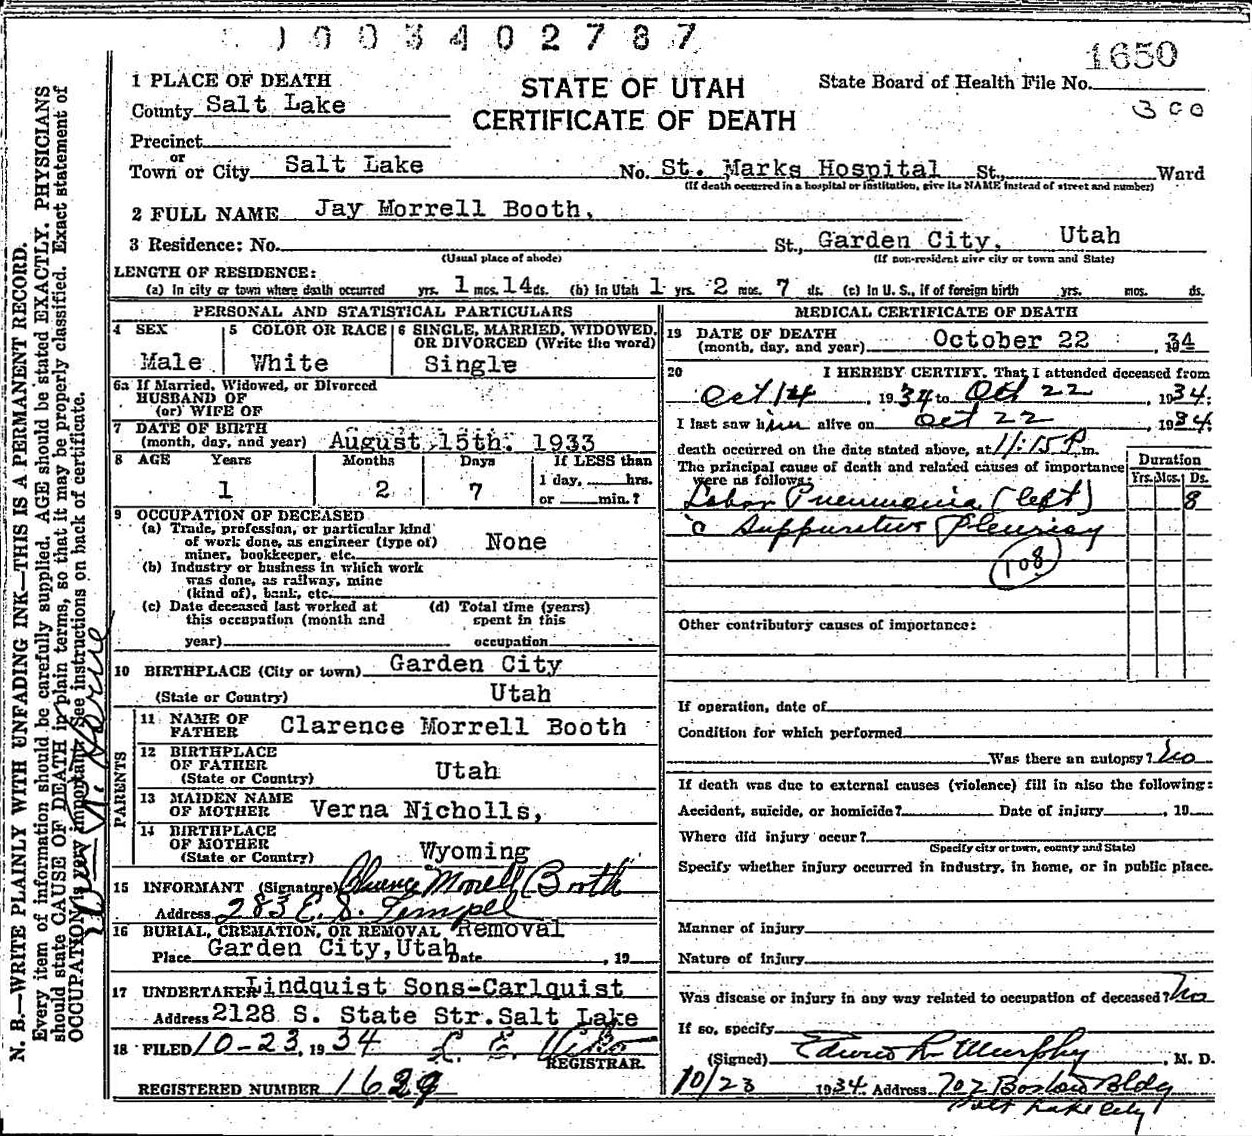 1003402787
1650
1 PLACE OF DEATH
STATE OF UTAH
CERTIFICATE OF DEATH
State Board of Health File No.
300
County Salt Lake
Precinct
or
Town or City Salt Lake No. St. Marks Hospital St., Ward
(If death occurred in a hospital or institution, give its NAME instead of street and number)
2 FULL NAME Jay Morrell Booth,
3 Residence: No. St., Garden City, Utah
(Usual place of abode) (If non-resident give city or town and State)
LENGTH OF RESIDENCE:
(a) In city or town where death occurred yrs. 1 mos. 14 ds. (b) In Utah 1 yrs. 2 mos. 7 ds. (c) In U. S., if of foreign birth yrs. mos. ds.
PERSONAL AND STATISTICAL PARTICULARS
4 SEX
Male
5 COLOR OR RACE
White
6 SINGLE, MARRIED, WIDOWED,
OR DIVORCED (Write the word)
Single
6a If Married, Widowed, or Divorced
HUSBAND OF
(or) WIFE OF
7 DATE OF BIRTH
(month, day, and year) August 15th. 1933
8 AGE Years Months Days If LESS than
1 day, hrs.
or min.?
1 2 7
9 OCCUPATION OF DECEASED
(a) Trade, profession, or particular kind
of work done, as engineer (type of)
miner, bookkeeper, etc. None
(b) Industry or business in which work
was done, as railway, mine
(kind of), bank, etc.
(c) Date deceased last worked at
this occupation (month and
year)
(d) Total time (years)
spent in this
occupation
10 BIRTHPLACE (City or town) Garden City
(State or Country) Utah
PARENTS
11 NAME OF
FATHER Clarence Morrell Booth
12 BIRTHPLACE
OF FATHER
(State or Country) Utah
13 MAIDEN NAME
OF MOTHER Verna Nicholls,
14 BIRTHPLACE
OF MOTHER
(State or Country) Wyoming
15 INFORMANT (Signature) Clarence Morrell Booth
Address 283 E. S. Tempel
16 BURIAL, CREMATION, OR REMOVAL Removal
Place Garden City, Utah Date , 19
17 UNDERTAKER Lindquist Sons-Carlquist
Address 2128 S. State Str. Salt Lake
18 FILED 10-23, 1934 L. E.
REGISTRAR.
REGISTERED NUMBER 1629
MEDICAL CERTIFICATE OF DEATH
19 DATE OF DEATH
(month, day, and year) October 22, 1934
20 I HEREBY CERTIFY, That I attended deceased from
Oct 14, 1934 to Oct 22, 1934;
I last saw him alive on Oct 22, 1934;
death occurred on the date stated above, at 11:15 P m.
The principal cause of death and related causes of importance
were as follows:
Duration
Yrs. Mos. Ds.
Lobar Pneumonia (left) 8
c Suppurative Pleurisy
108
Other contributory causes of importance:
If operation, date of
Condition for which performed
Was there an autopsy? No
If death was due to external causes (violence) fill in also the following:
Accident, suicide, or homicide? Date of injury , 19
Where did injury occur?
(Specify city or town, county and State)
Specify whether injury occurred in industry, in home, or in public place.
Manner of injury
Nature of injury
Was disease or injury in any way related to occupation of deceased? No
If so, specify
(Signed) Edwin R. Murphy, M. D.
10/23 1934 Address 702 Boston Bldg
Salt Lake City
N. B.—WRITE PLAINLY WITH UNFADING INK—THIS IS A PERMANENT RECORD.
Every item of information should be carefully supplied. AGE should be stated EXACTLY. PHYSICIANS
should state CAUSE OF DEATH in plain terms, so that it may be properly classified. Exact statement of
OCCUPATION is very important. See instructions on back of certificate.